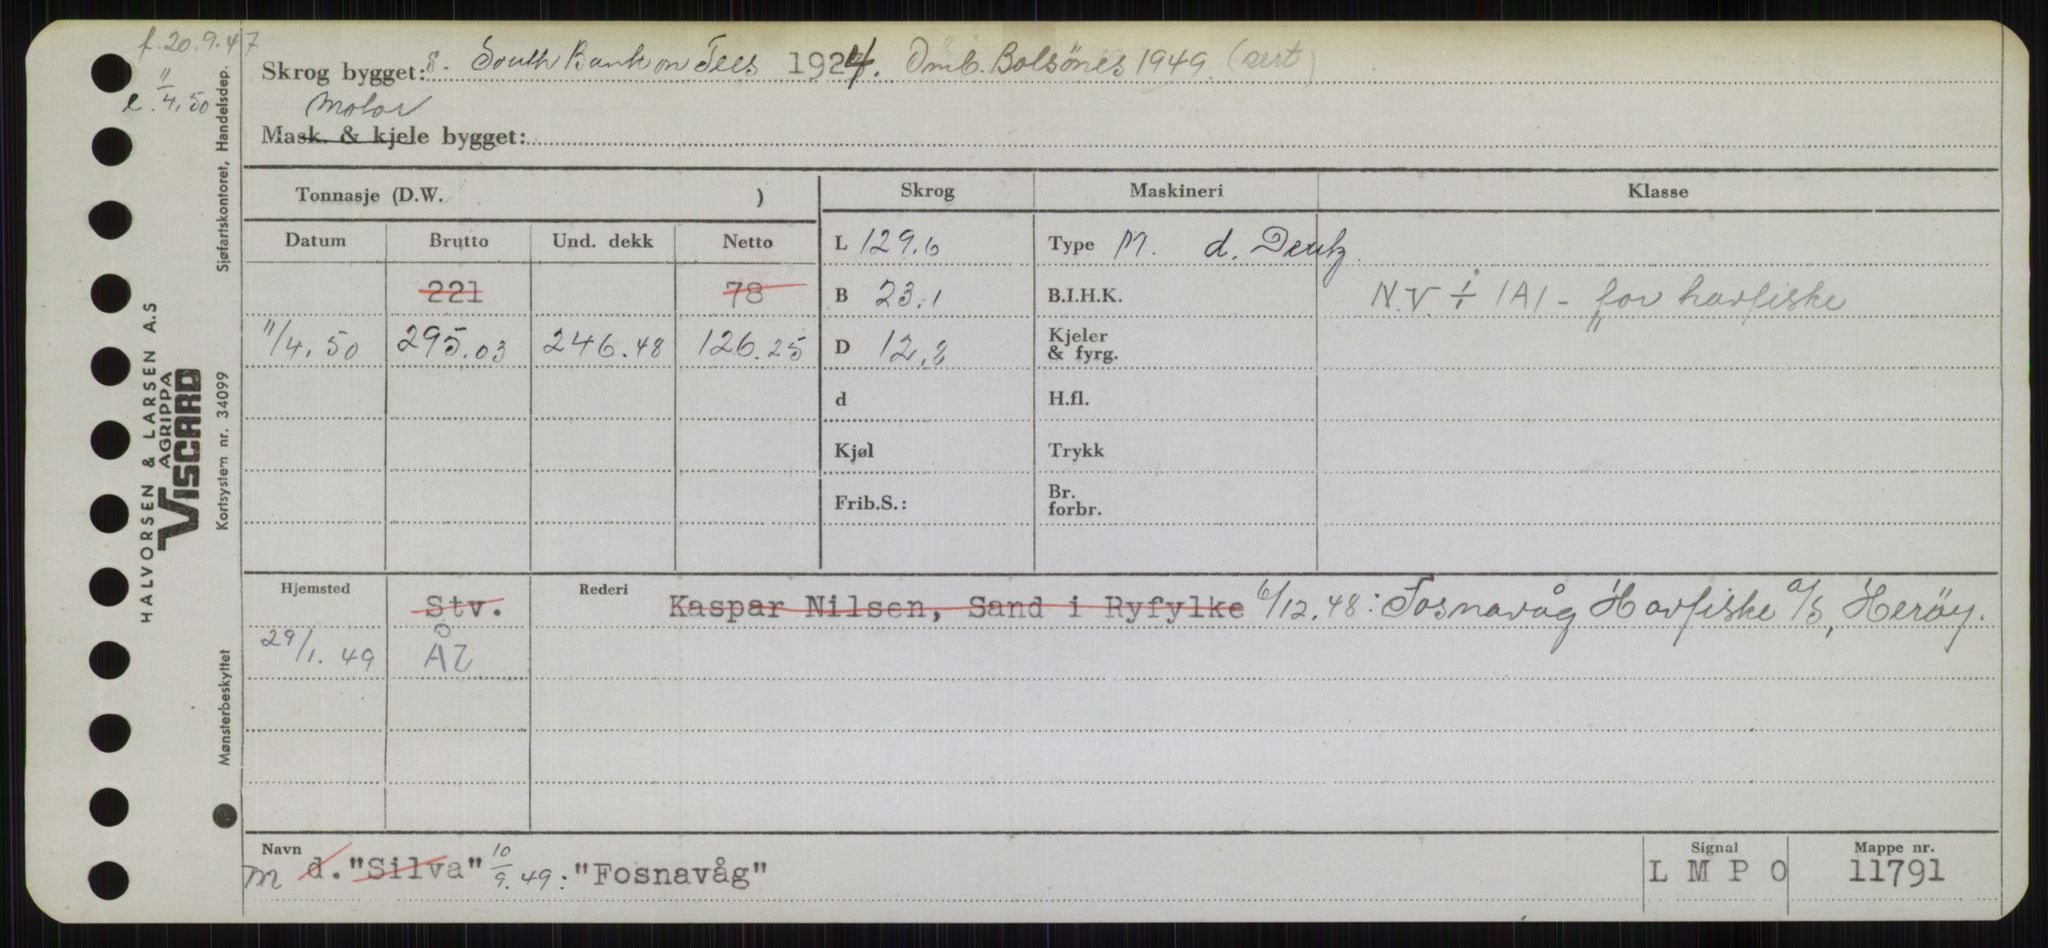 f. 20.9.47
e. 11/4.50
Skrog bygget: S. South Bank on Tees 1924. Omb. Bolsönes 1949 (sert)
Motor
Mask. & kjele bygget:
Tonnasje (D.W. ) Skrog Maskineri Klasse
Datum Brutto Und. dekk Netto L 129.6 Type M. d. Deutz
221 78 B 23.1 B.I.H.K. N.V ÷ 1A1 - for havfiske
11/4.50 295.03 246.48 126.25 D 12.2 Kjeler & fyrg.
d H.fl.
Kjøl Trykk
Frib.S.: Br. forbr.
Hjemsted Stv. Rederi Kaspar Nilsen, Sand i Ryfylke 6/12.48: Fosnavåg Havfiske a/s, Herøy.
29/1.49 Ål
Navn Signal Mappe nr.
M d. "Silva" 10/9.49: "Fosnavåg" L M P O 11791
HALVORSEN & LARSEN A.S
AGRIPPA
VISCARD
Sjøfartskontoret, Handelsdep.
Kortsystem nr. 34099
Mønsterbeskyttet